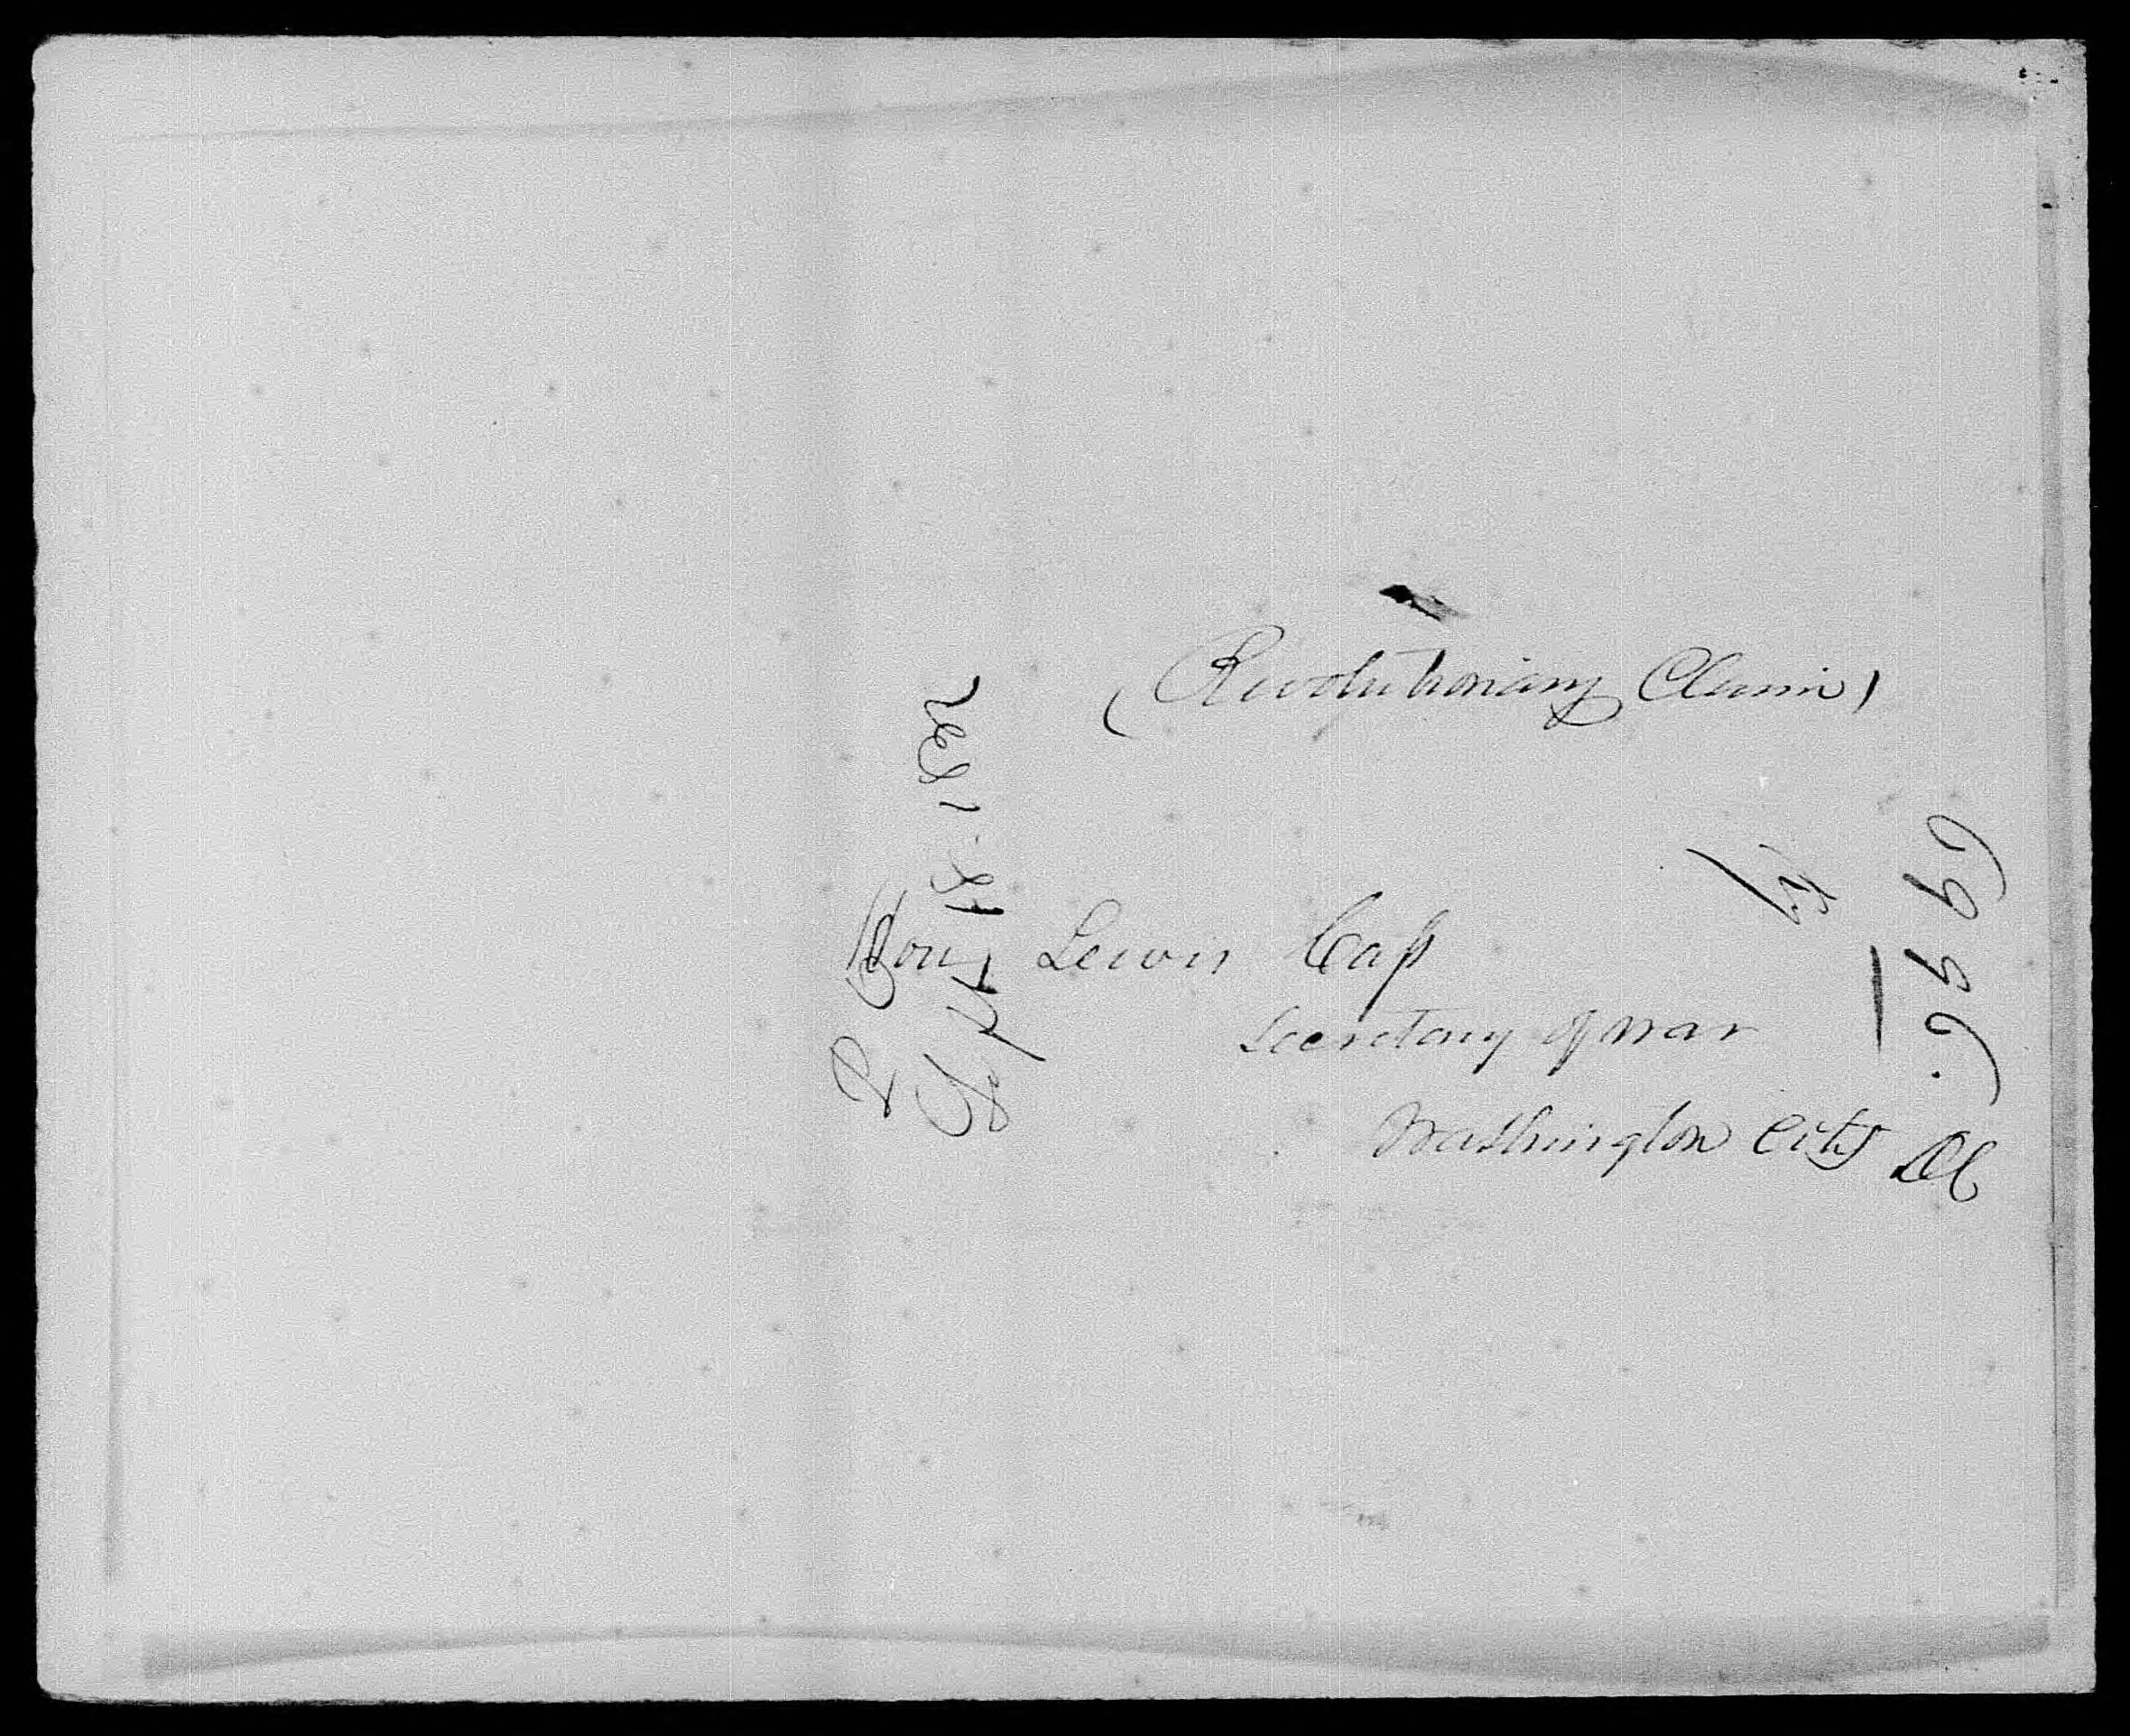 (Revolutionary Claim)
Hon Lewis Cass
Secretary of War
Washington City DC
Sept 14. 1832